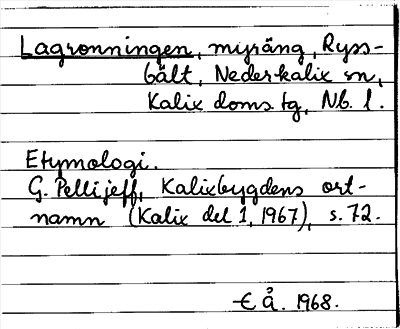 Lagronningen, myräng, Ryss-
bält, Nederkalix sn,
Kalix doms. tg, Nb. l.
Etymologi.
G. Pellijeff, Kalixbygdens ort-
namn (Kalix del 1, 1967), s. 72.
E Å. 1968.